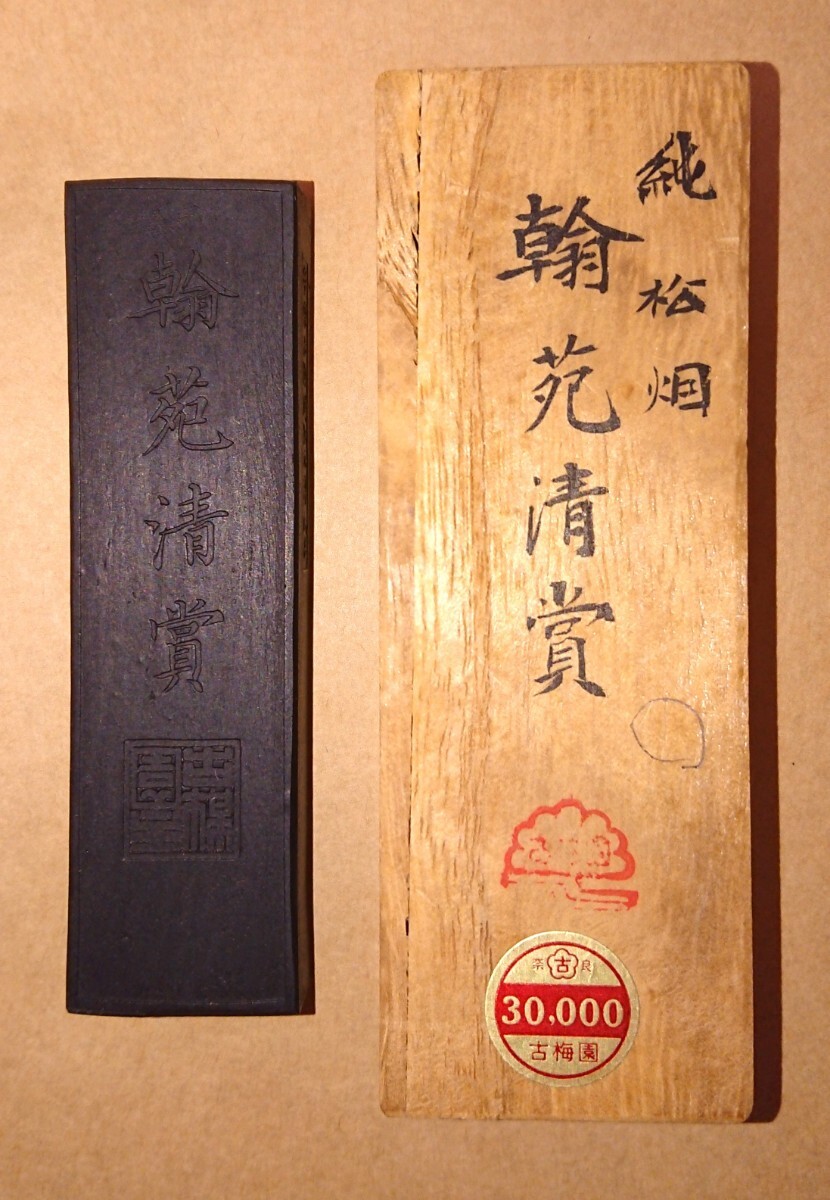 翰苑清賞
純松烟
翰苑清賞
奈古良
30,000
古梅園